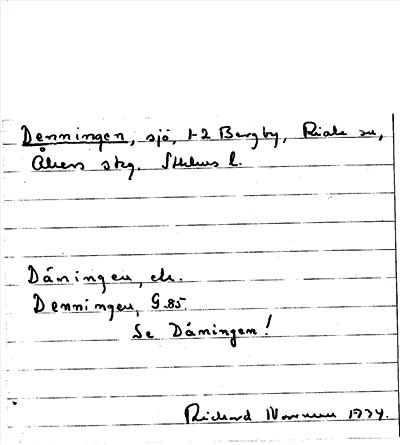 Denningen, sjö, 1-2 Bergby, Riala sn,
Åkers skg. Sthlms l.
Dåningen, ek.
Denningen, G.85.
Se Dåningen!
Richard 1934.